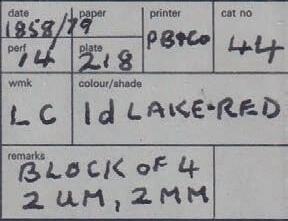 date paper printer cat no
1858/79 PB&Co 44
perf plate
14 218
wmk colour/shade
LC 1d LAKE-RED
remarks
BLOCK OF 4
2 UM, 2 MM